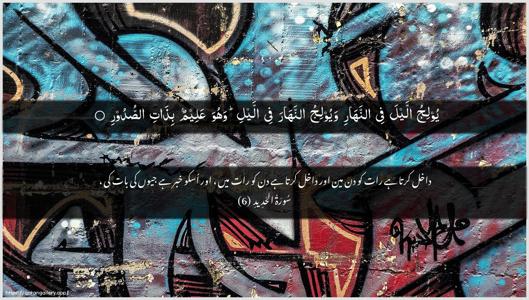 يُولِجُ الَّيْلَ فِى النَّهَارِ وَيُولِجُ النَّهَارَ فِى الَّيْلِ ۚ وَهُوَ عَلِيْمٌۢ بِذَاتِ الصُّدُوْرِ ○
داخل کرتا ہے رات کو دن مین اور داخل کرتا ہے دن کو رات میں ، اور اُسکو خبر ہے جیوں کی بات کی ،
سُورَةُ الحَدِيد (6)
https://qurangallery.app/